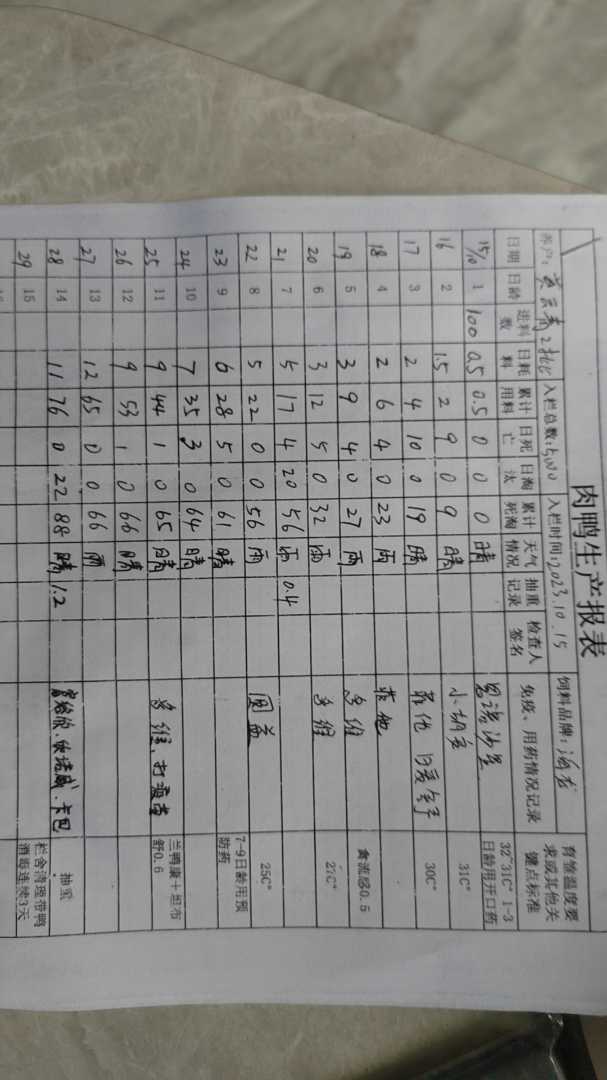 肉鸭生产报表
养户: 2批 入栏总数:5000 入栏时间:2023.10.15 饲料品牌:海龙
日期 日龄 进料数 日耗料 累计用料 日死亡 日淘汰 累计死淘 天气情况 抽重记录 检查人签名 免疫、用药情况记录 育雏温度要求或其他关键点标准
15/10 1 100 0.5 0.5 0 0 0 晴 恩诺沙星 32~31C° 1-3日龄用开口药
16 2 1.5 2 9 0 9 晴 31C°
17 3 2 4 10 0 19 晴 30C°
18 4 2 6 4 0 23 雨
19 5 3 9 4 0 27 雨 多维 禽流感0.5
20 6 3 12 5 0 32 雨 多维 27C°
21 7 5 17 4 20 56 雨 0.4
22 8 5 22 0 0 56 雨 25C°
23 9 6 28 5 0 61 晴 7-9日龄用预防药
24 10 7 35 3 0 64 晴
25 11 9 44 1 0 65 晴 多维、打疫苗 兰鸭康+坦布舒0.6
26 12 9 53 1 0 66 晴
27 13 12 65 0 0 66 雨
28 14 11 76 0 22 88 晴 1.2 抽重
29 15 栏舍清理带鸭消毒连续3天